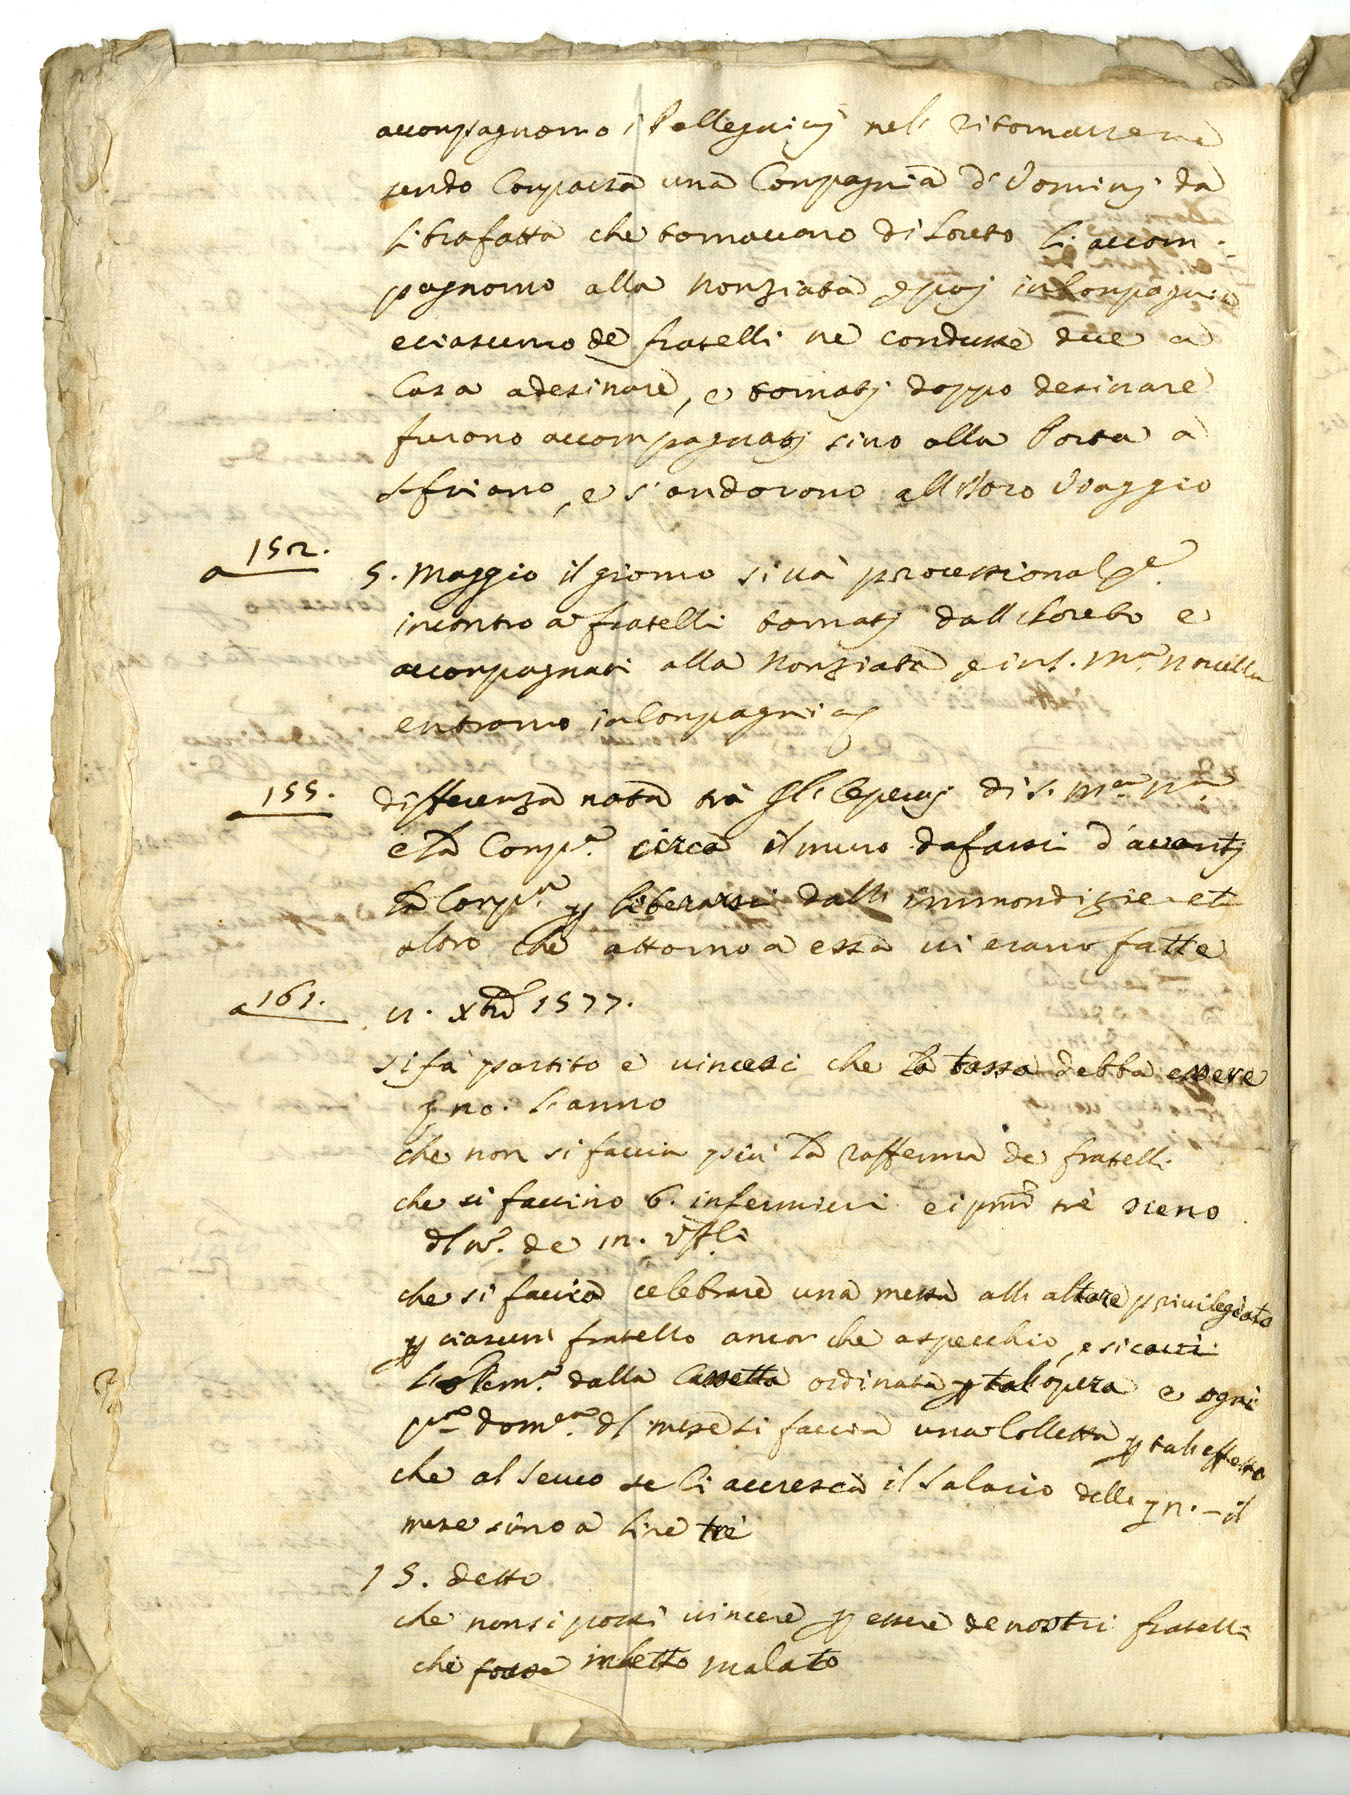 accompagnorno i Pellegrinj nel ritornarsene
sendo Comparsa una Compagnia d'Vominj da
Librafatta che tornavano di Loreto li accom-
pagnorno alla Nonziata e poj in Compagnia
e ciascuno de fratelli ne condusse due a
Casa a desinare, e tornatj doppo desinare
furono accompagnatj sino alla Porta a
S. friano, e s'andorono all loro Viaggio
a 152.
5. Maggio il giorno si và processionalme
incontro a fratelli tornatj dall Loreto e
accompagnati alla Nonziata e in S. Ma. Novella
entrorno in Compagnia
a 155.
differenza nata trà gli Operaj di S. Ma. Na.
e la Compa. circa il muro da farsi d'avantj
la Compa. p liberarsi dalle immondizie et
altro che attorno a essa vi erano fatte
a 161.
Xbre 1577.
si fa partito e vincesi che la tassa debba essere
l'anno
che non si faccia più la rafferma de fratelli
che si faccino 6. infermieri e i primi tre sieno
del no. de
che si faccia celebrare una messa all altare privilegiato
p ciascun fratello ancor che a specchio, e si cavi
l'elemna. dalla Cassetta ordinata p tal opera e ogni
pma. domca. del mese si faccia una Colletta p tal effetto
che al Servo se li accresca il Salario delle il
mese sino a lire tre
15. detto
che non si possi vincere p essere de nostri fratelli
che fosse in letto malato